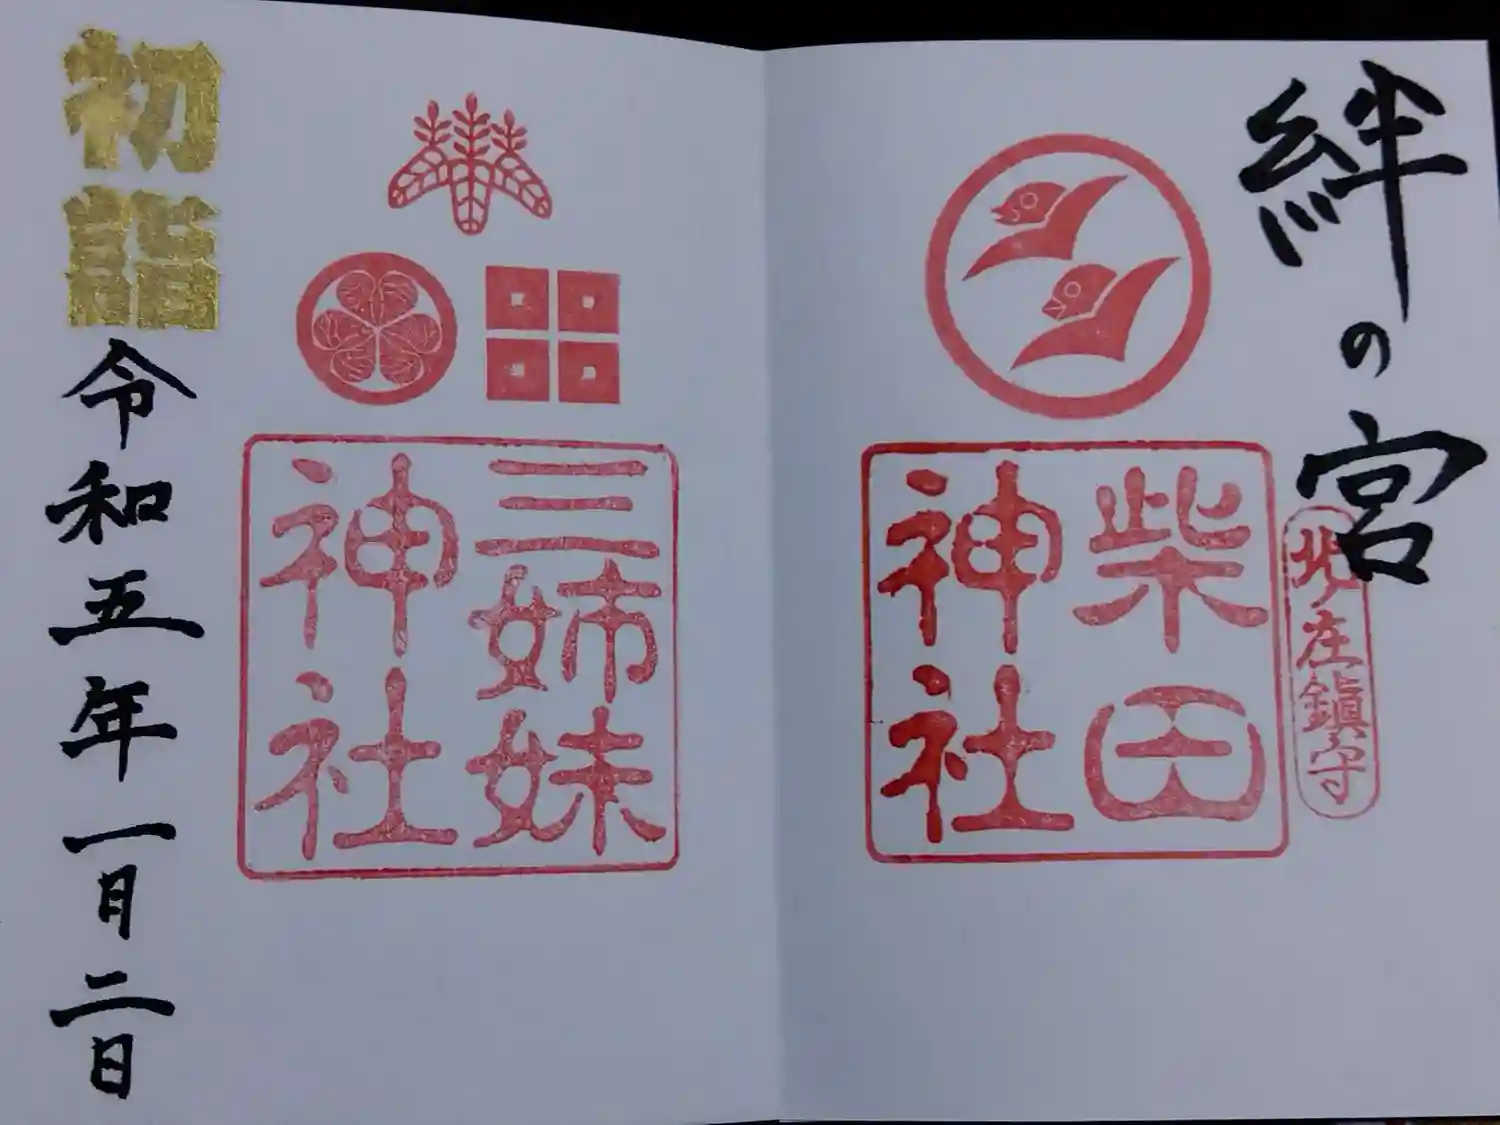 絆の宮
北庄鎮守
柴田
神社
三姉妹
神社
初詣
令和五年一月二日